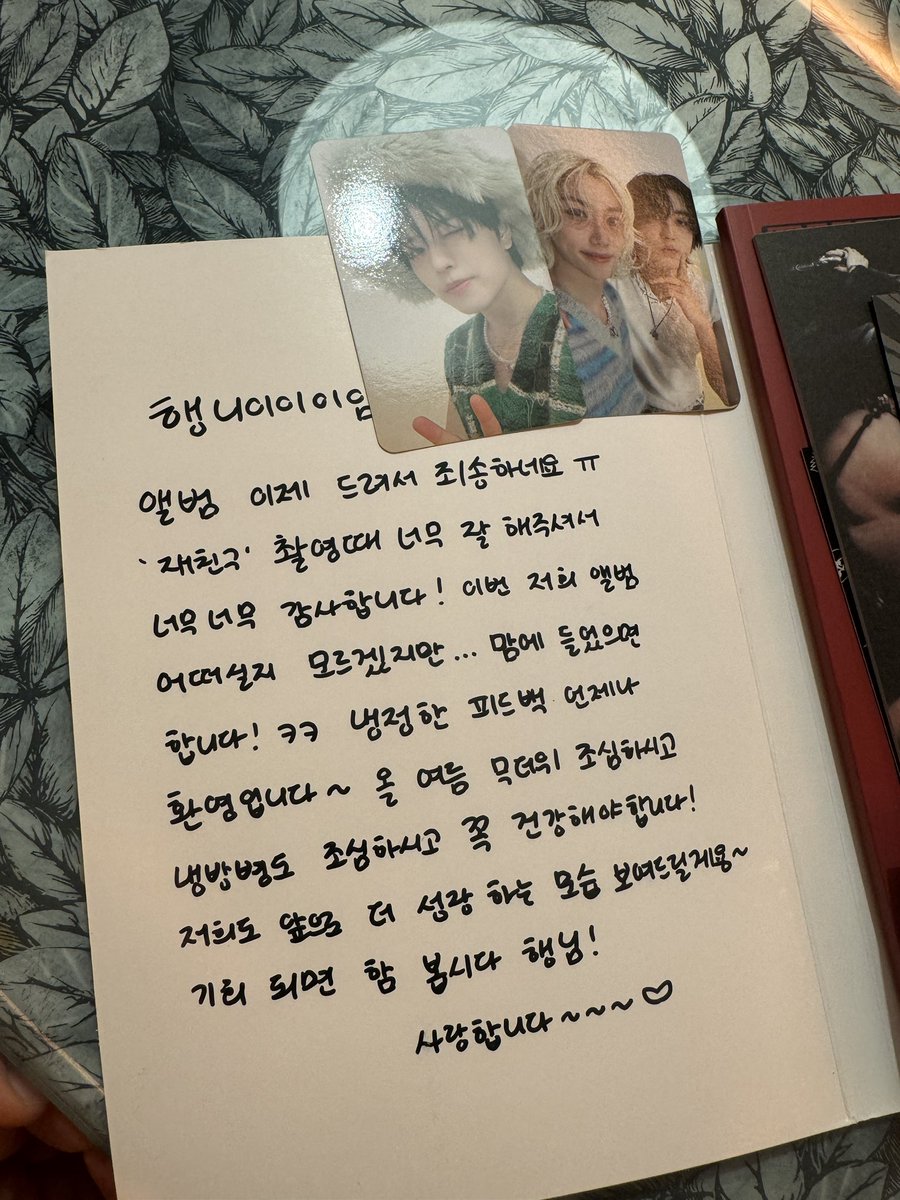 행니이이이임
앨범 이제 드려서 죄송하네요 ㅠ
'재친구' 촬영때 너무 잘 해주셔서
너무너무 감사합니다! 이번 저희 앨범
어떠실지 모르겠지만... 맘에 들었으면
합니다! ㅋㅋ 냉정한 피드백 언제나
환영입니다~ 올 여름 무더위 조심하시고
냉방병도 조심하시고 꼭 건강해야합니다!
저희도 앞으로 더 성장 하는 모습 보여드릴게용~
기회 되면 함 봅시다 행님!
사랑합니다~~~♡